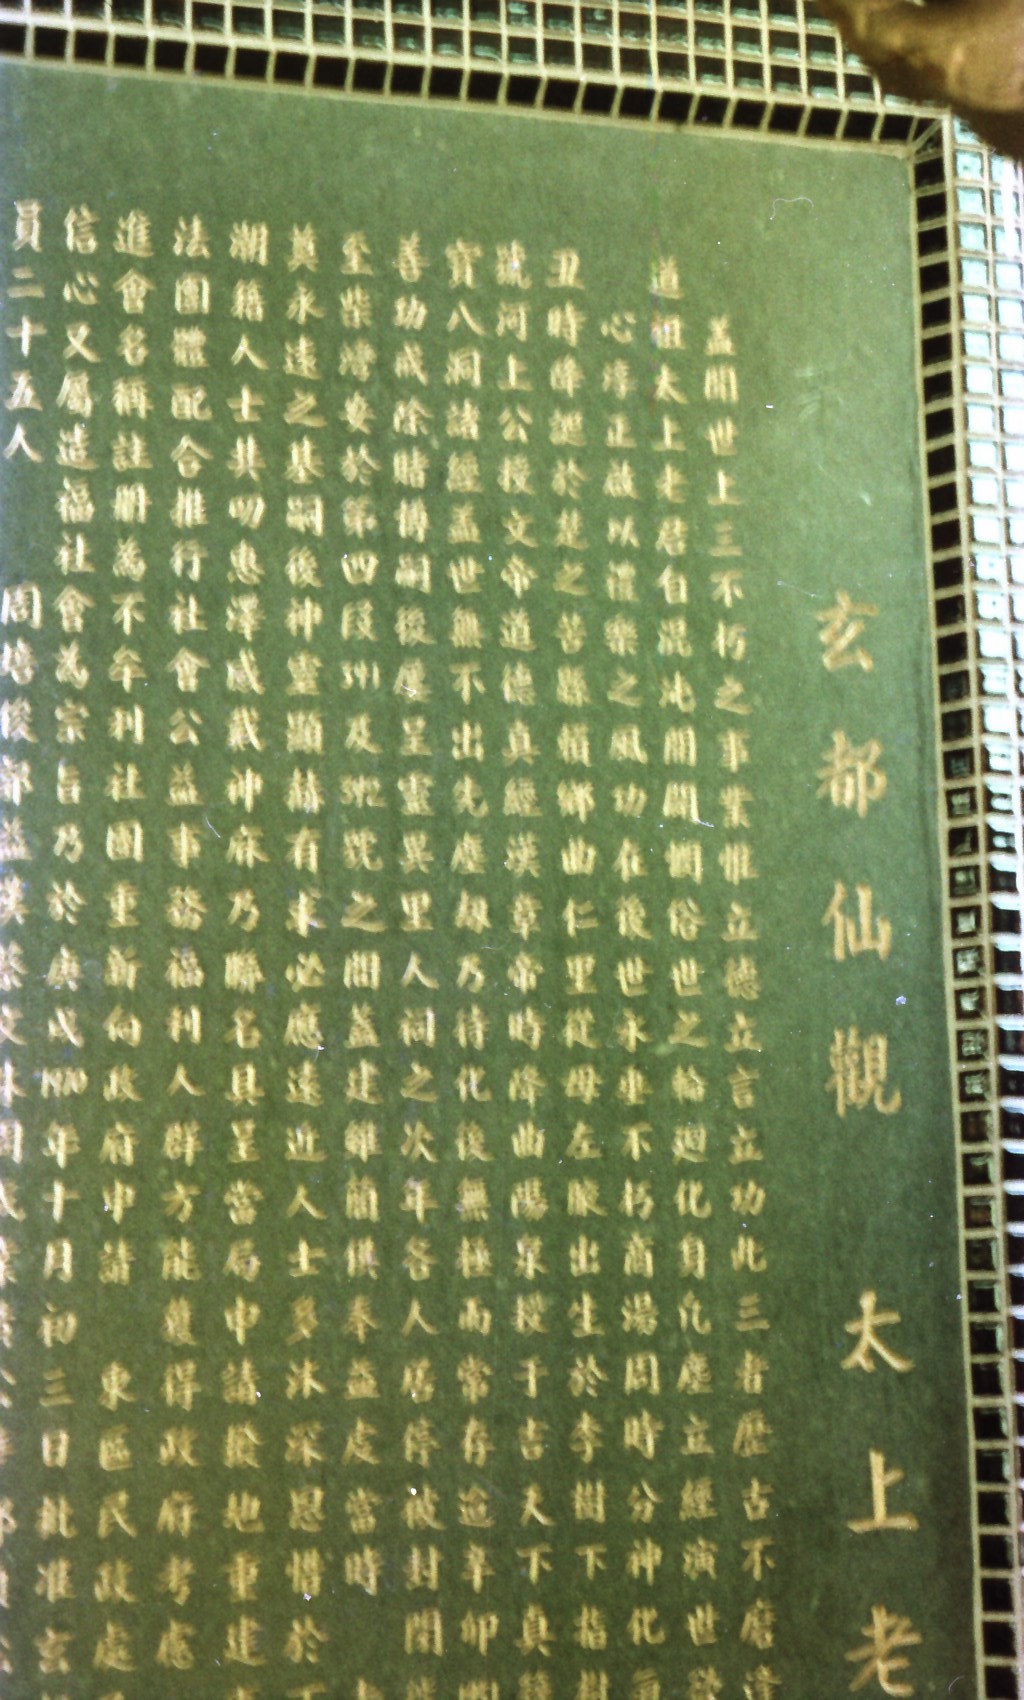 玄都仙觀 太上老
蓋聞世上三不朽之事業惟立德立言立功此三者歷古不磨
道祖太上老君自混沌開闢憫俗世之輪迴化身凡塵立經演世
心淳正啟以禮樂之風功在後世永垂不朽商湯周時分神化
丑時降誕於是之苦縣賴鄉曲仁里從母左腋出生於李樹下指樹
號河上公授文帝道德真經漢章帝時降曲陽泉授于吉天下真
寶八洞諸經蓋世無不出先塵劫乃待化後無極而常存迨辛卯
善功戒除賭博嗣後屢呈靈異里人祠之次年各人居停被封閉
至柴灣安於第四段391及392號之間蓋建雛簡供奉益處當時
奠永遠之基嗣後神靈顯赫有求必應遠近人士多沐深恩惜於
潮籍人士共叨惠澤感戴神庥乃聯名具呈當局申請撥地重建
法團體配合推行社會公益事務福利人群方能獲得政府考慮
進會名稱註冊為不牟利社團重新向政府申請 東區民政處
信心又屬造福社會為宗旨乃於庚戌1970年十月初三日批准玄
員二十五人 周培